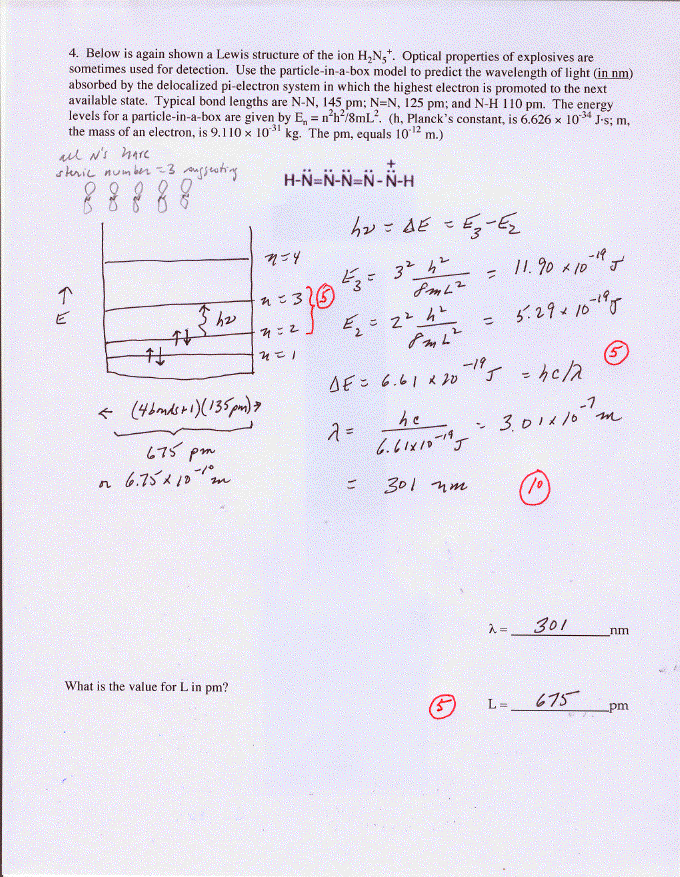 4. Below is again shown a Lewis structure of the ion H₂N₅⁺. Optical properties of explosives are
sometimes used for detection. Use the particle-in-a-box model to predict the wavelength of light (in nm)
absorbed by the delocalized pi-electron system in which the highest electron is promoted to the next
available state. Typical bond lengths are N-N, 145 pm; N=N, 125 pm; and N-H 110 pm. The energy
levels for a particle-in-a-box are given by Eₙ = n²h²/8mL². (h, Planck's constant, is 6.626 × 10⁻³⁴ J·s; m,
the mass of an electron, is 9.110 × 10⁻³¹ kg. The pm, equals 10⁻¹² m.)
all N's have
steric number = 3 suggesting
+
H-N̈=N̈-N̈=N̈-N̈-H
hν = ΔE = E₃-E₂
n=4
E₃ = 3² h²/8mL² = 11.90 x 10⁻¹⁹ J
↑
E
hν
n=3
5
n=2
E₂ = 2² h²/8mL² = 5.29 x 10⁻¹⁹ J
n=1
5
ΔE = 6.61 x 10⁻¹⁹ J = hc/λ
← (4 bonds+1)(135 pm) →
λ = hc/6.61x10⁻¹⁹ J = 3.01x10⁻⁷ m
675 pm
or 6.75 x 10⁻¹⁰ m
= 301 nm
10
λ = 301 nm
What is the value for L in pm?
5
L = 675 pm